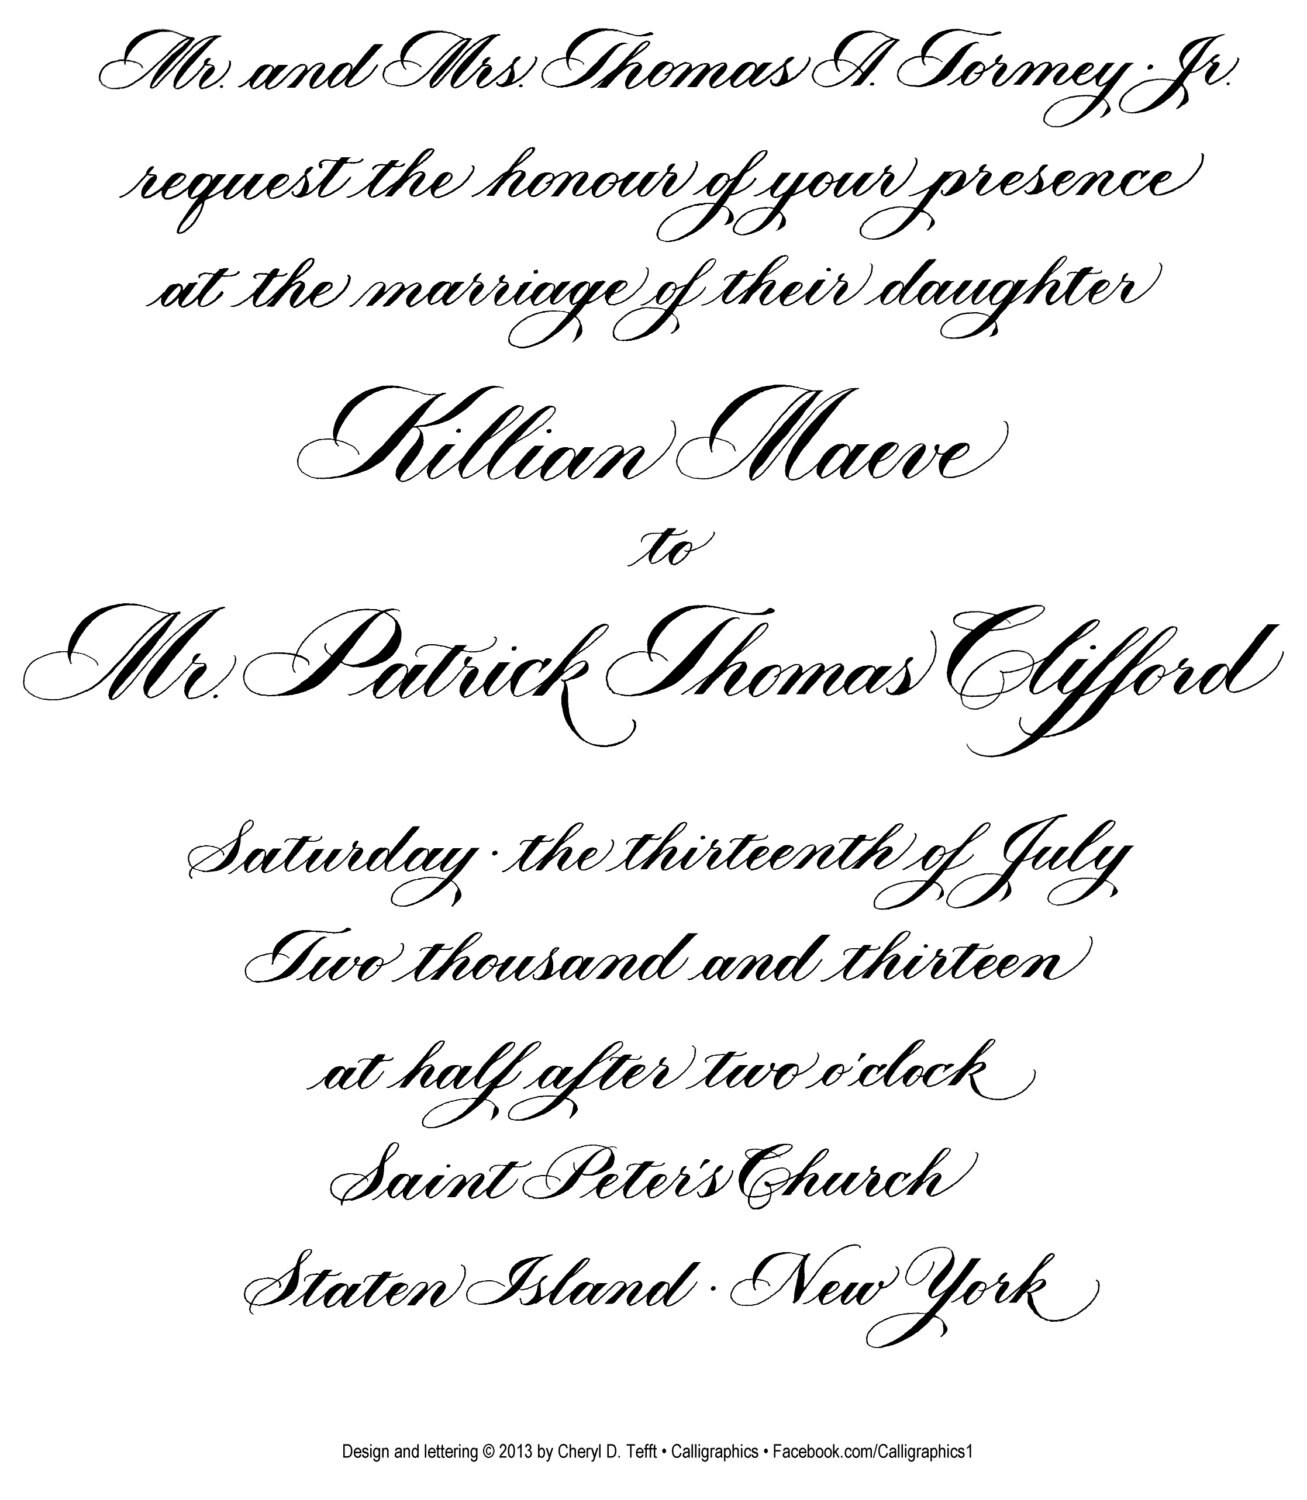 Mr. and Mrs. Thomas A. Tormey · Jr.
request the honour of your presence
at the marriage of their daughter
Killian Maeve
to
Mr. Patrick Thomas Clifford
Saturday · the thirteenth of July
Two thousand and thirteen
at half after two o'clock
Saint Peter's Church
Staten Island · New York
Design and lettering © 2013 by Cheryl D. Tefft • Calligraphics • Facebook.com/Calligraphics1